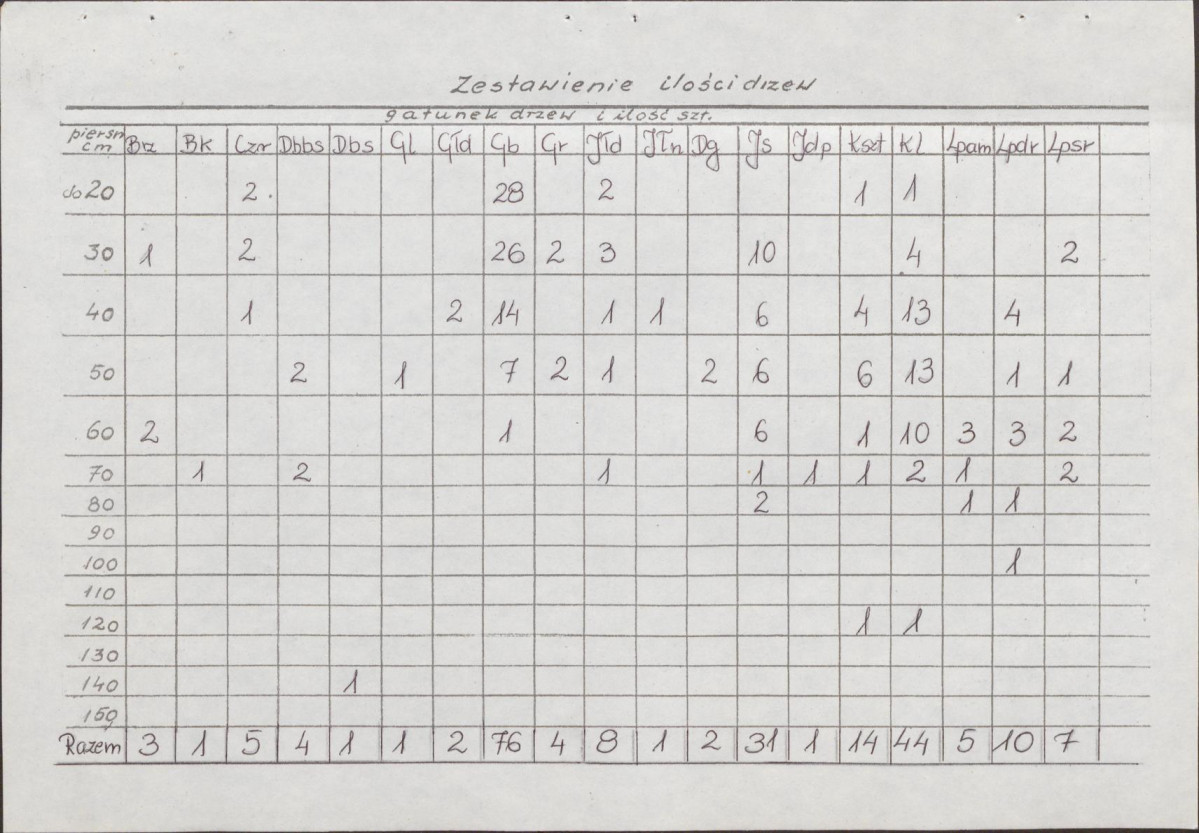 Zestawienie ilości drzew
gatunek drzew i ilość szt.
piersn cm Brz Bk Czr Dbbs Dbs Gl Głd Gb Gr Jłd Jłn Dg Js Jdp Kszt Kl Lpam Lpdr Lpsr
do 20 2. 28 2 1 1
30 1 2 26 2 3 10 4 2
40 1 2 14 1 1 6 4 13 4
50 2 1 7 2 1 2 6 6 13 1 1
60 2 1 6 1 10 3 3 2
70 1 2 1 1 1 1 2 1 2
80 2 1 1
90
100 1
110
120 1 1
130
140 1
150
Razem 3 1 5 4 1 1 2 76 4 8 1 2 31 1 14 44 5 10 7